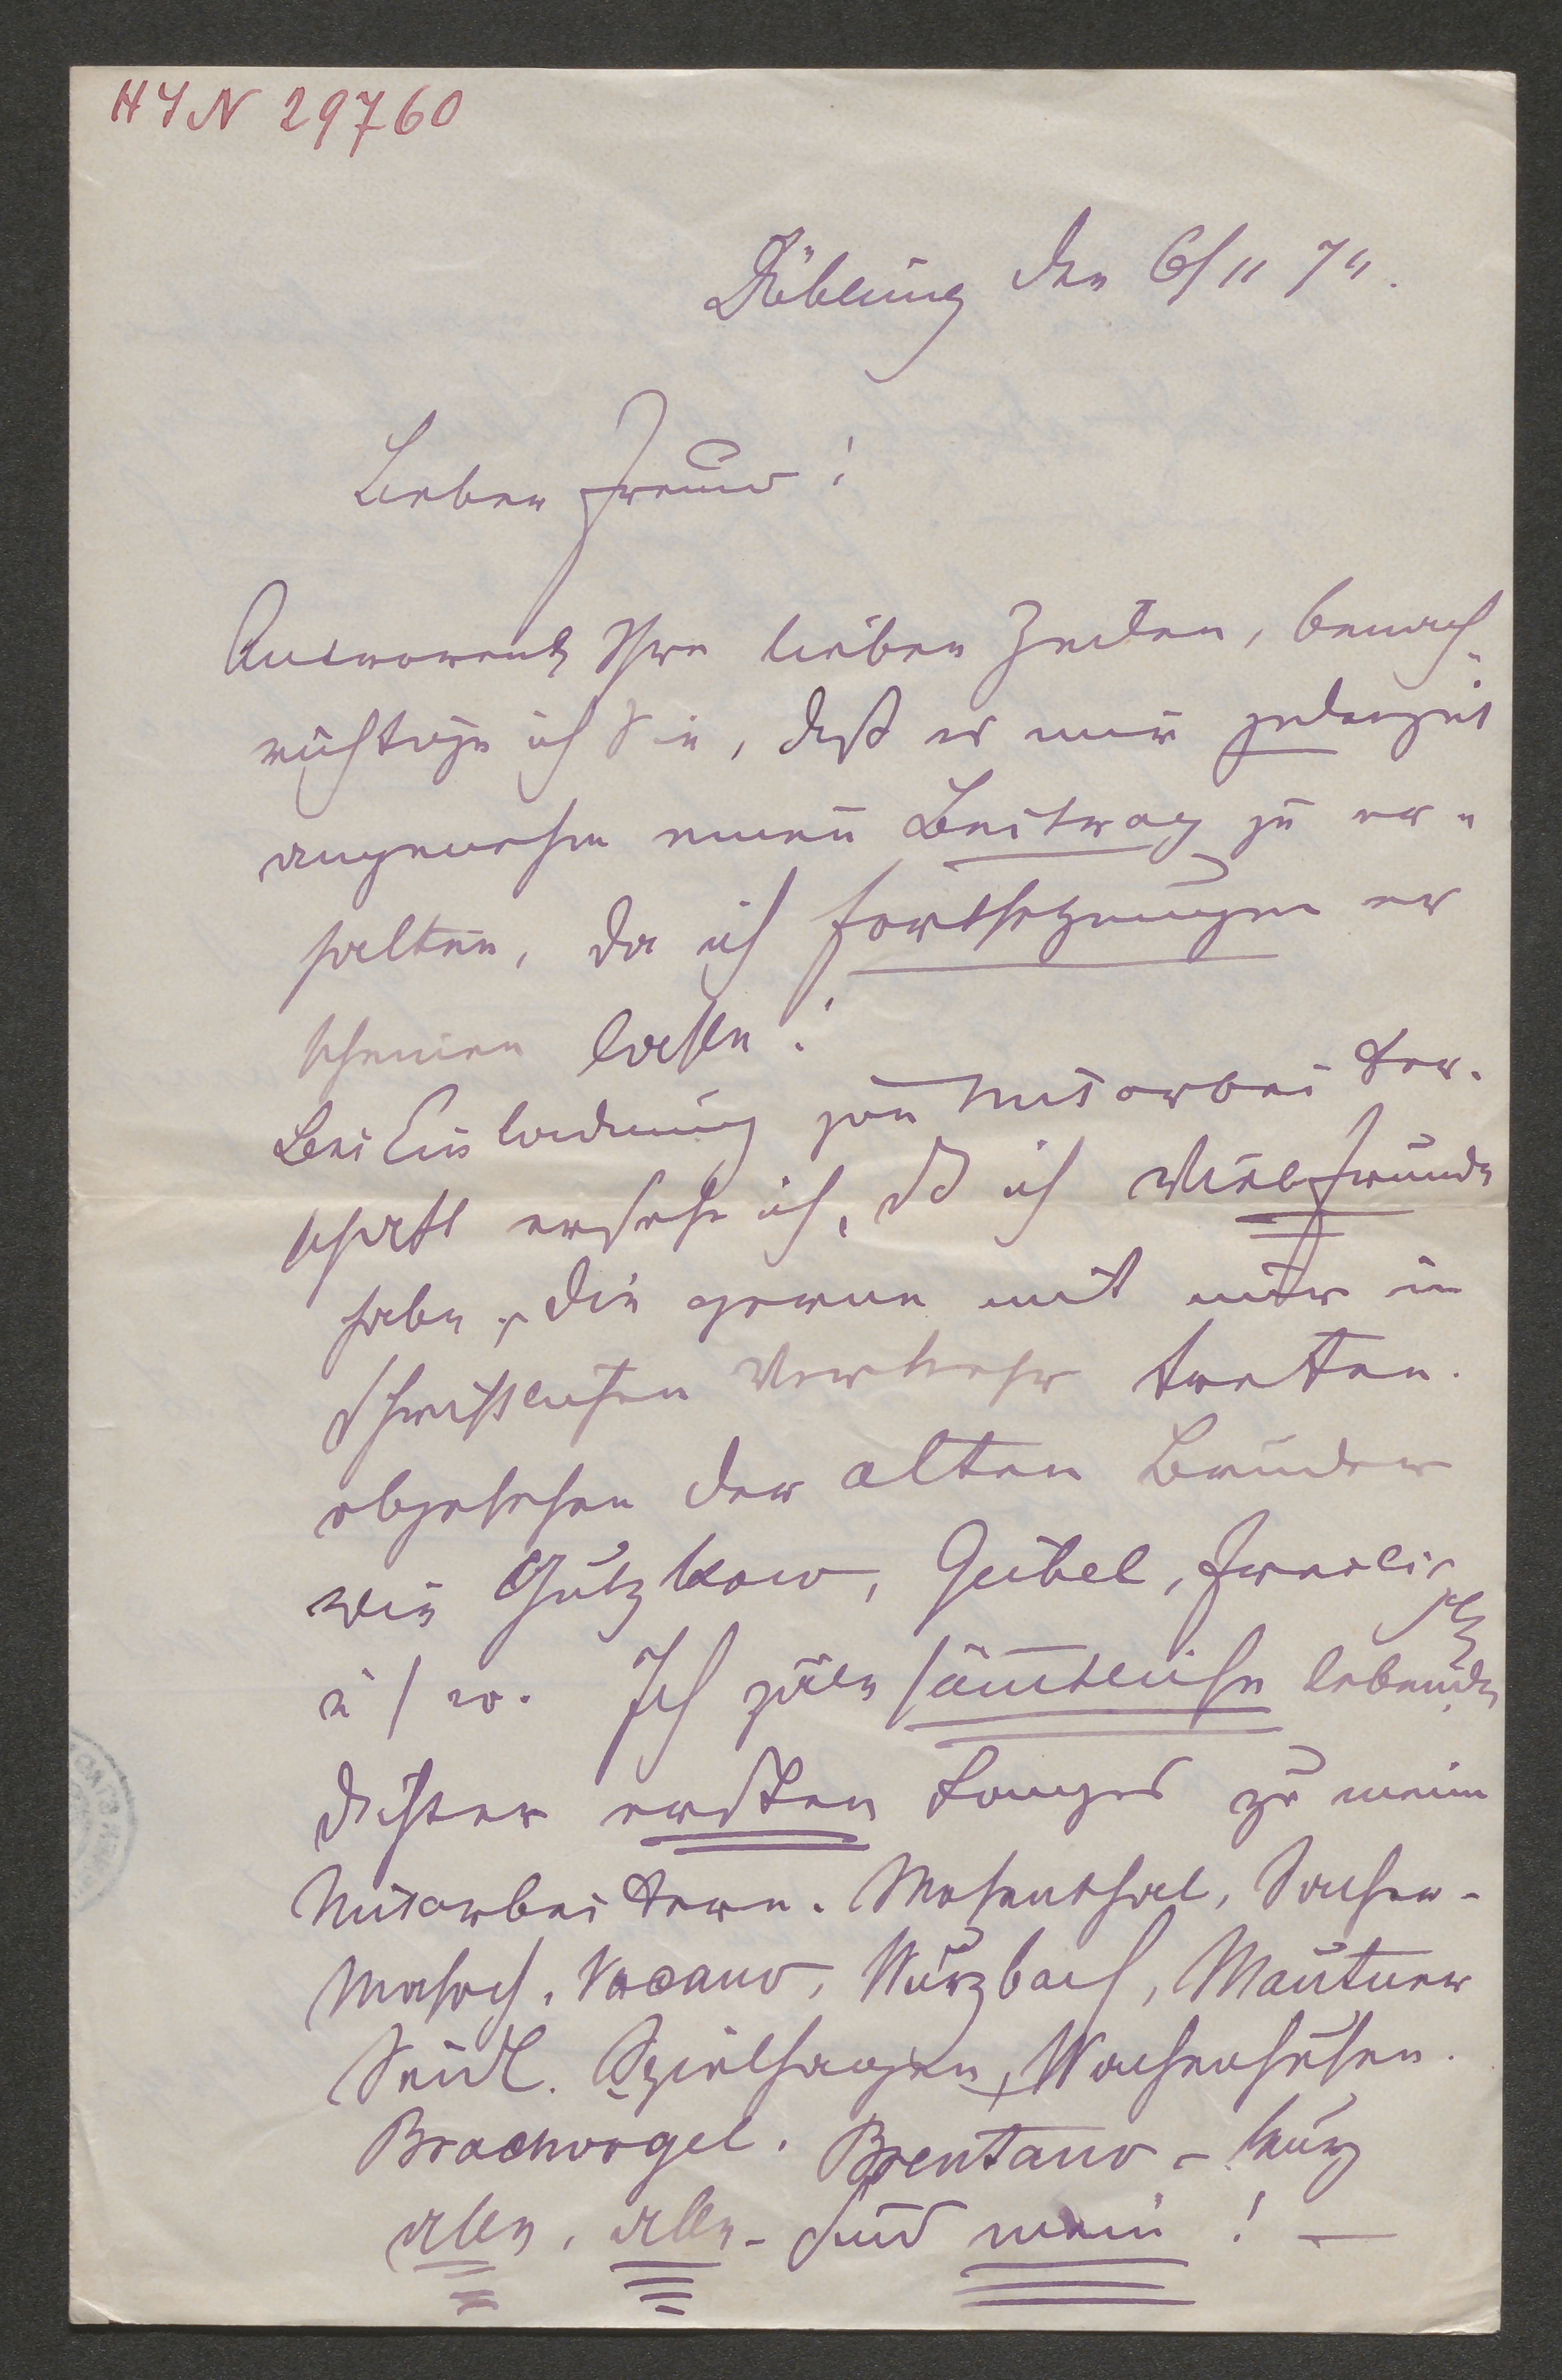 HIN 29760
Döbling den 6/11 74.
Lieber Freund!
Antwortend Ihre lieben Zeilen, benach-
richtige ich Sie, daß es mir jederzeit
angenehm einen Beitrag zu er-
halten, da ich Fortsetzungen er
scheinen lasse!
Bei Einladung zur Mitarbeiter-
schaft ersehe ich, daß ich viele Freunde
habe, die gerne mit mir in
schriftlichen Verkehr treten.
abgesehen der alten Brüder
wie Gutzkow, Geibel, Freilig
u s w. Ich zäle sämtliche lebende
Dichter ersten Ranges zu mein
Mitarbeitern. Mosenthal, Sacher-
Masoch, Vacano, Wurzbach, Mautner
Seidl. Spielhagen, Wachenhusen.
Brachvogel. Brentano – kurz
alle, alle – sind mein! —